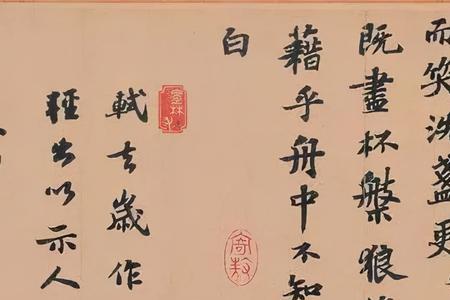 而笑洗盞更
既盡杯槃狼
藉乎舟中不知
白
軾去歲作
輕出以示人